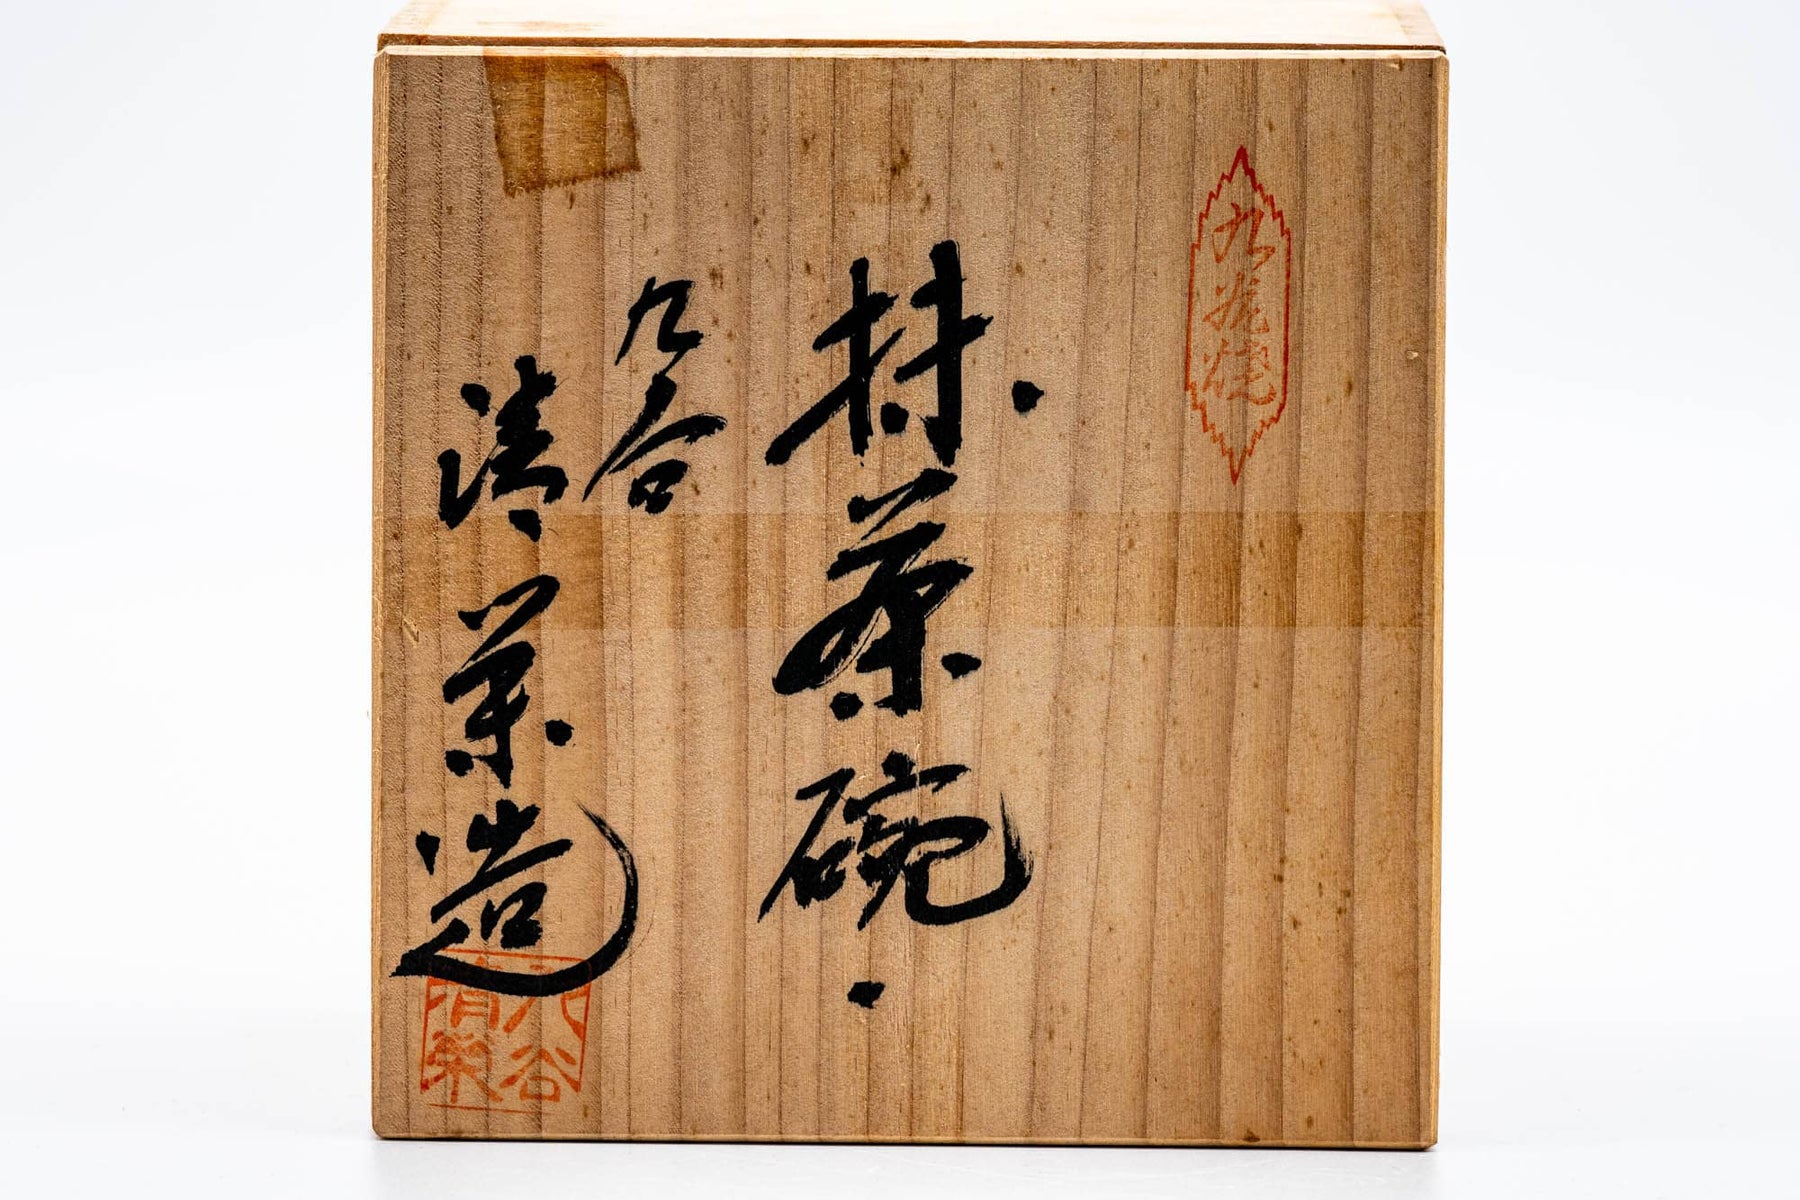 抹茶碗
九谷
清栄造
九谷
清栄